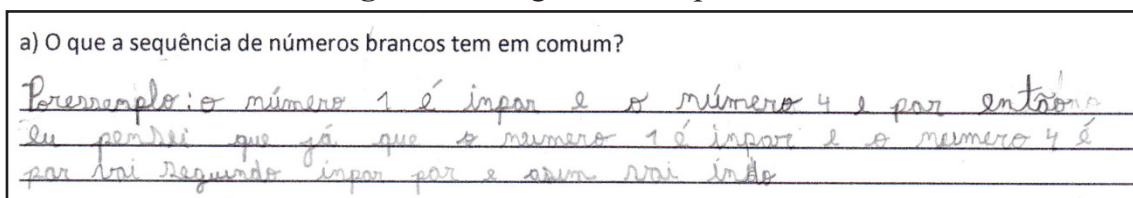 a) O que a sequência de números brancos tem em comum?
Poressemplo: o número 1 é inpar e o número 4 e par então
eu pensei que já que o neumero 1 é inpar e o neumero 4 é
par vai seguindo inpar par e asim vai indo